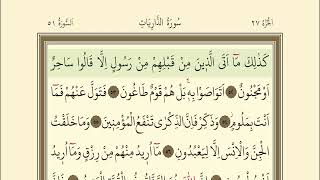 الجزء ٢٧ سورة الذاريات السورة ٥١
كَذَٰلِكَ مَا أَتَى الَّذِينَ مِنْ قَبْلِهِمْ مِنْ رَسُولٍ إِلَّا قَالُوا سَاحِرٌ
أَوْ مَجْنُونٌ ٥٢ أَتَوَاصَوْا بِهِ بَلْ هُمْ قَوْمٌ طَاغُونَ ٥٣ فَتَوَلَّ عَنْهُمْ فَمَا
أَنْتَ بِمَلُومٍ ٥٤ وَذَكِّرْ فَإِنَّ الذِّكْرَىٰ تَنْفَعُ الْمُؤْمِنِينَ ٥٥ وَمَا خَلَقْتُ
الْجِنَّ وَالْإِنْسَ إِلَّا لِيَعْبُدُونِ ٥٦ مَا أُرِيدُ مِنْهُمْ مِنْ رِزْقٍ وَمَا أُرِيدُ